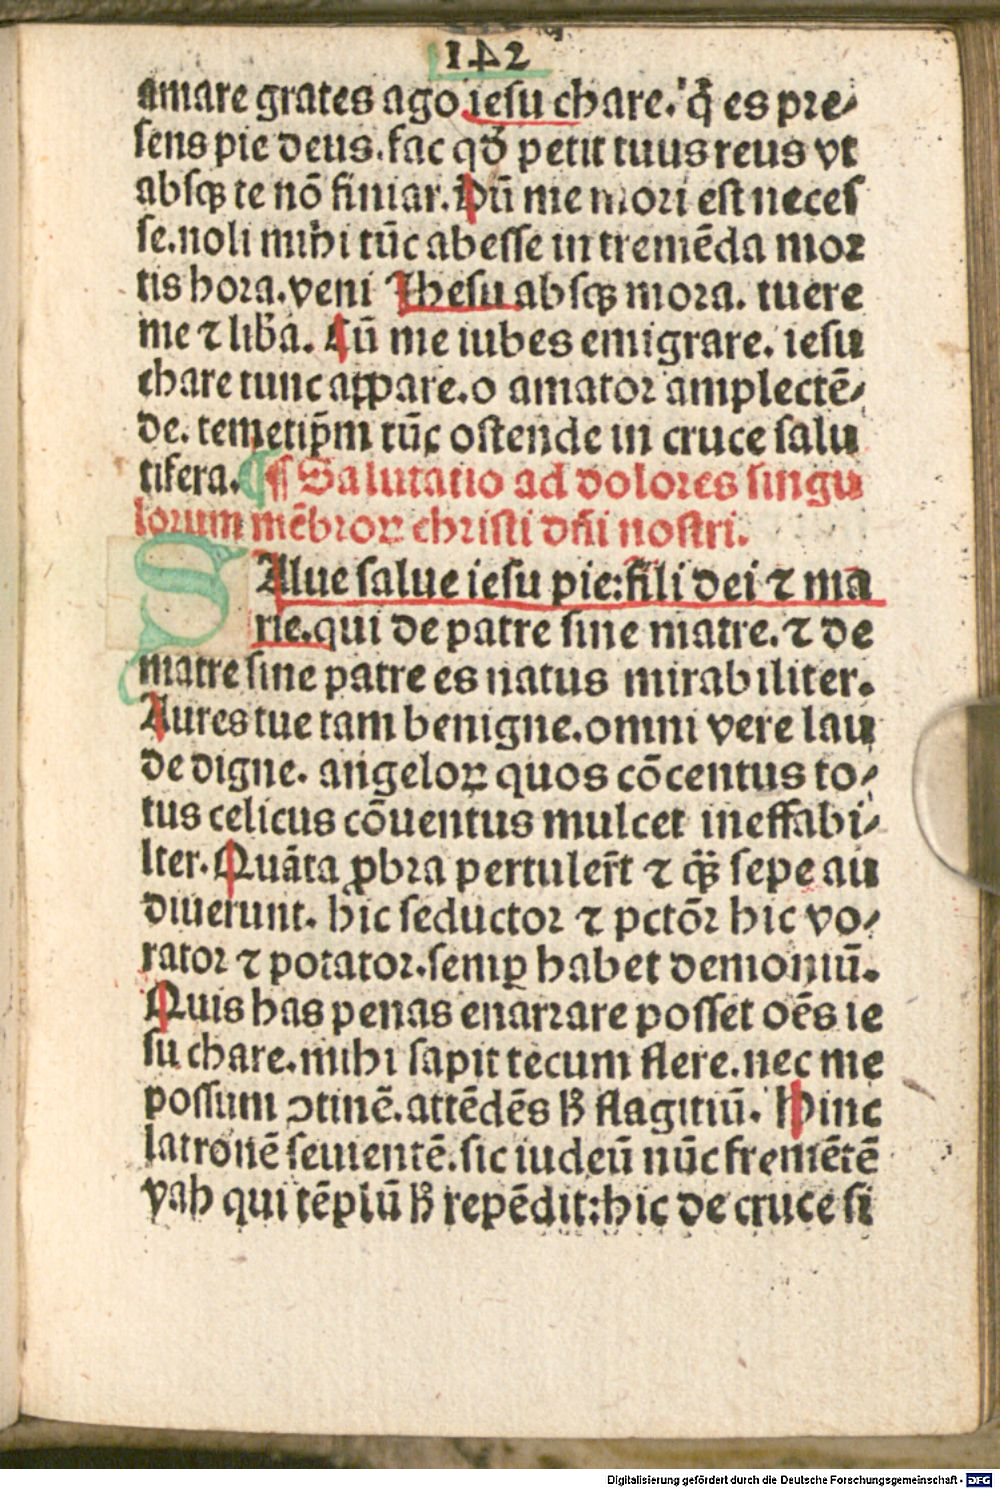 142
amare grates ago iesu chare. q̃ es pre⸗
sens pie deus. fac qđ petit tuus reus vt
absqꝫ te nō finiar. Dū me mori est neces
se. noli mihi tūc abesse in tremēda mor
tis hora. veni Ihesu absqꝫ mora. tuere
me ⁊ liba. Cū me iubes emigrare. iesu
chare tunc appare. o amator amplectē⸗
de. temetip̄m tūc ostende in cruce salu
tifera. ¶ Salutatio ad dolores singu
lorum mēbroꝝ christi dñi nostri.
SAlue salue iesu pie: fili dei ⁊ ma
rie. qui de patre sine matre. ⁊ de
matre sine patre es natus mirabiliter.
Aures tue tam benigne. omni vere lau
de digne. angeloꝝ quos cōcentus to⸗
tus celicus cōuentus mulcet ineffabi⸗
lter. Quāta ꝓbra pertuler̄t ⁊ q̄ꝫ sepe au
diuerunt. hic seductor ⁊ pctōr hic vo⸗
rator ⁊ potator. semꝑ habet demoniū.
Quis has penas enarrare posset oēs ie
su chare. mihi sapit tecum flere. nec me
possum ꝯtinē. attēdēs ħ flagitiū. Hinc
latronē seuientē. sic iudeū nūc fremētē
vah qui tēplū ħ repēdit: hic de cruce si
Digitalisierung gefördert durch die Deutsche Forschungsgemeinschaft - DFG